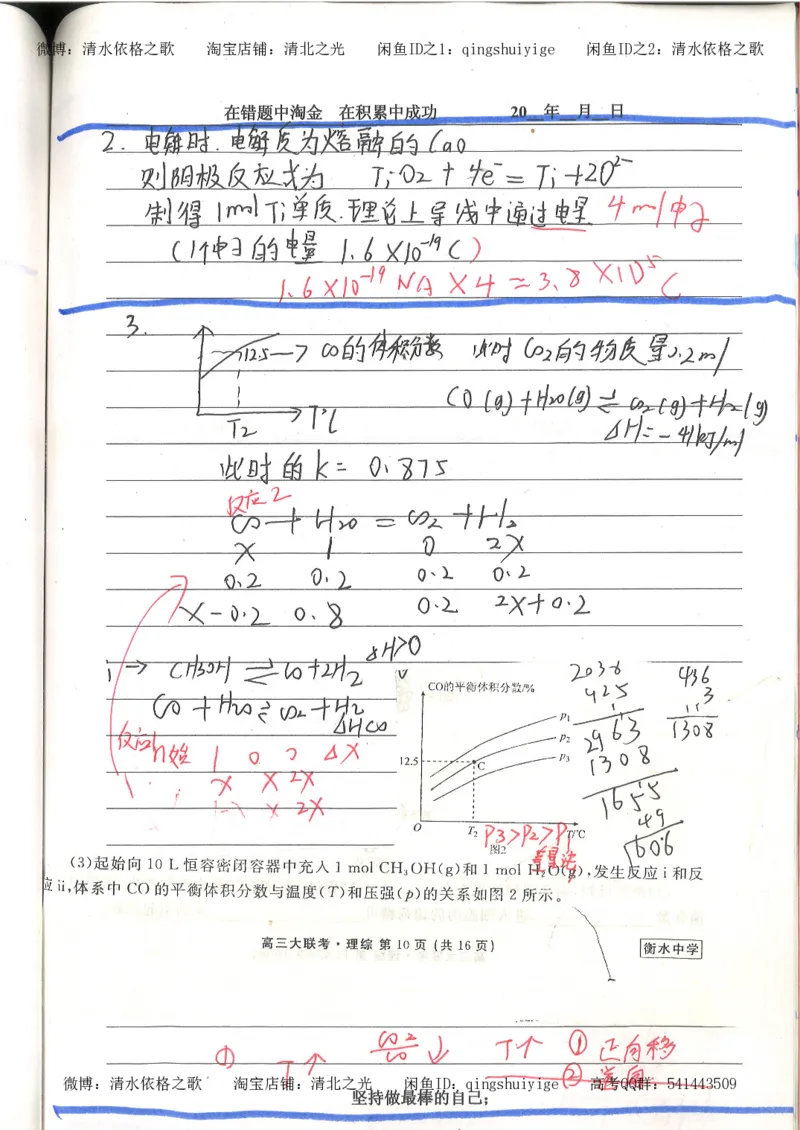 微博：清水依格之歌 淘宝店铺：清北之光 闲鱼ID之1：qingshuiyige 闲鱼ID之2：清水依格之歌
在错题中淘金 在积累中成功 20 年 月 日
2. 电解时.电解质为熔融的CaO
则阴极反应式为 TiO2 + 4e⁻ = Ti + 2O²⁻
制得1mol Ti单质.理论上导线中通过电量 4mol电子
(1个电子的电量 1.6×10⁻¹⁹C)
1.6×10⁻¹⁹ NA ×4 = 3.8×10⁵ C
3.
12.5 → CO的体积分数 此时CO2的物质量0.2mol
T2 T℃
CO(g)+H2O(g)⇌CO2(g)+H2(g)
ΔH=-41kJ/mol
此时的k= 0.875
反应2
CO + H2O = CO2 + H2
x 1 0 2x
0.2 0.2 0.2 0.2
x-0.2 0.8 0.2 2x+0.2
i → CH3OH ⇌ CO+2H2 ΔH>0
CO + H2O ⇌ CO2 + H2
ΔH<0
n始 1 0 0 Δx
x x 2x
1-x x 2x
CO的平衡体积分数/%
p₁
p₂
p₃
12.5
C
O T₂ T/℃
P3>P2>P1
图2
2036
425
2963
1308
1655
49
1606
436
3
1308
(3)起始向10 L恒容密闭容器中充入1 mol CH₃OH(g)和1 mol H₂O(g),发生反应i和反
应ii,体系中CO的平衡体积分数与温度(T)和压强(p)的关系如图2所示。
高三大联考·理综 第10页(共16页)
衡水中学
① T↑ CO2/CO ↓ T↑ ① 正向移
②
微博：清水依格之歌 淘宝店铺：清北之光 闲鱼ID：qingshuiyige 高考QQ群：541443509
坚持做最棒的自己；